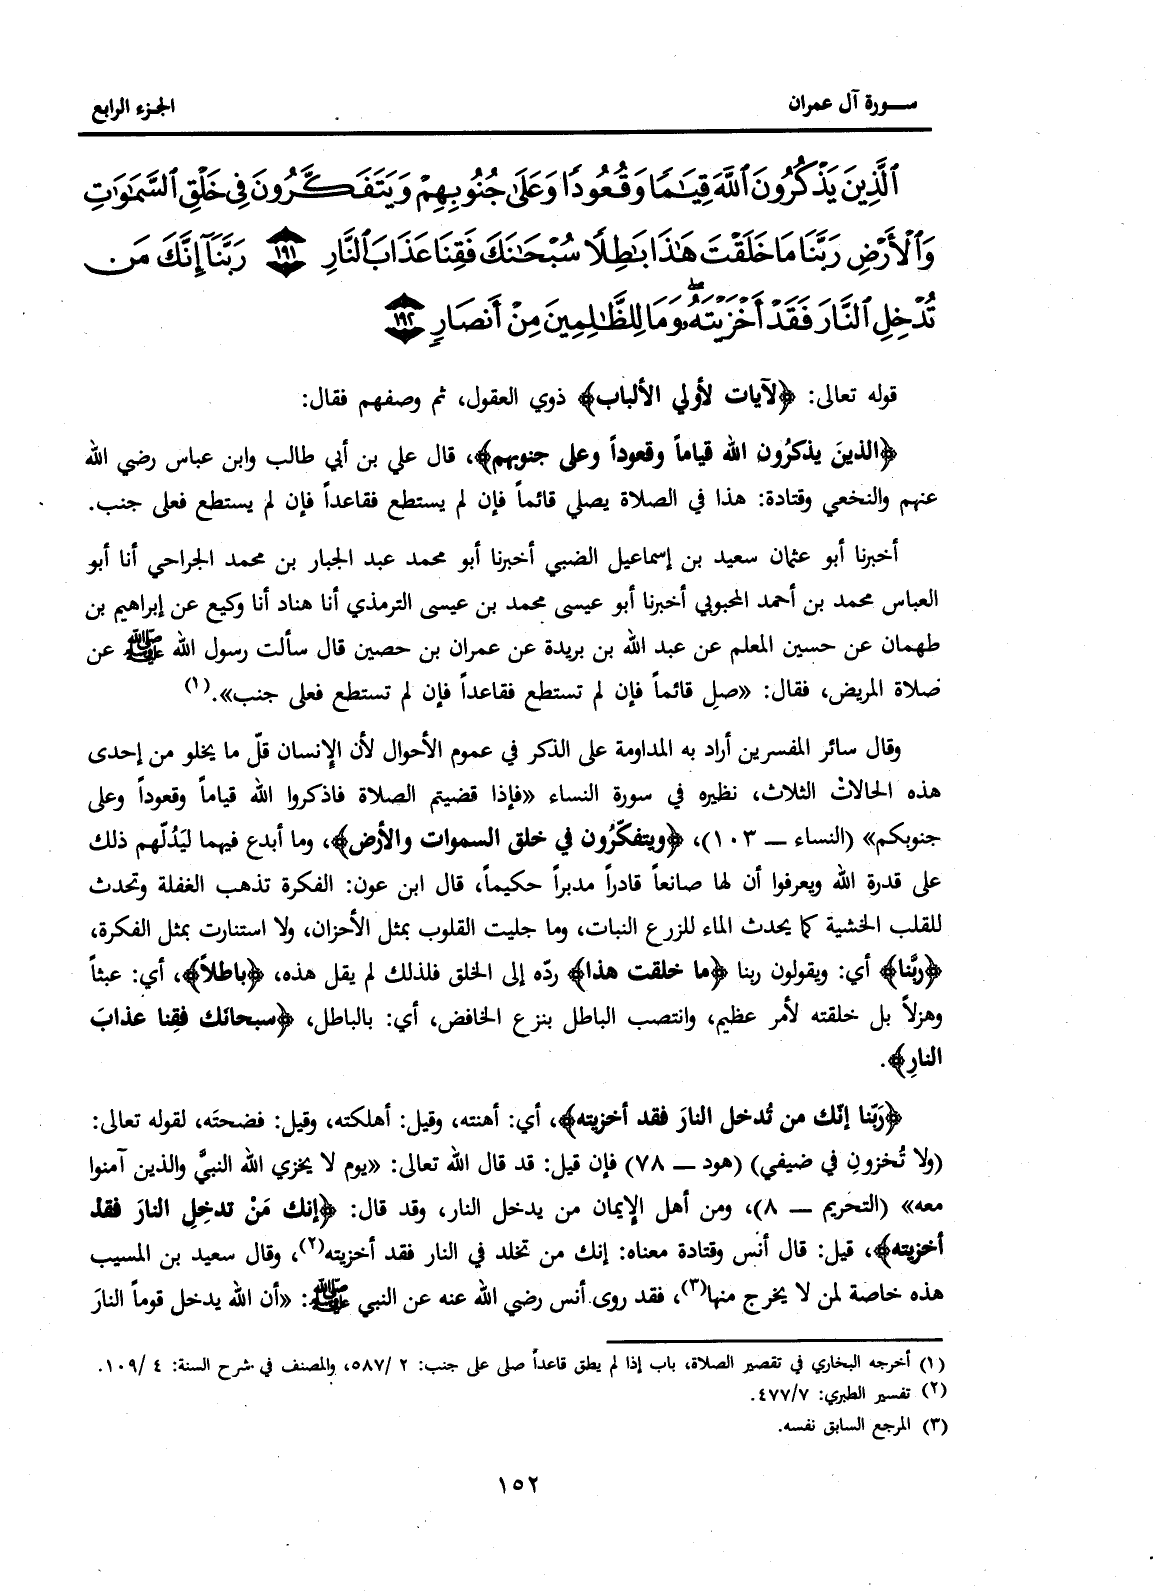 سورة آل عمران
الجزء الرابع
ٱلَّذِينَ يَذْكُرُونَ ٱللَّهَ قِيَٰمًا وَقُعُودًا وَعَلَىٰ جُنُوبِهِمْ وَيَتَفَكَّرُونَ فِى خَلْقِ ٱلسَّمَٰوَٰتِ
وَٱلْأَرْضِ رَبَّنَا مَا خَلَقْتَ هَٰذَا بَٰطِلًا سُبْحَٰنَكَ فَقِنَا عَذَابَ ٱلنَّارِ ١٩١ رَبَّنَآ إِنَّكَ مَن
تُدْخِلِ ٱلنَّارَ فَقَدْ أَخْزَيْتَهُۥۖ وَمَا لِلظَّٰلِمِينَ مِنْ أَنصَارٍ ١٩٢
قوله تعالى: ﴿لآيات لأولي الألباب﴾ ذوي العقول، ثم وصفهم فقال:
﴿الذينَ يذكرُون الله قياماً وقعوداً وعلى جنوبهم﴾، قال علي بن أبي طالب وابن عباس رضي الله
عنهم والنخعي وقتادة: هذا في الصلاة يصلي قائماً فإن لم يستطع فقاعداً فإن لم يستطع فعلى جنب.
أخبرنا أبو عثمان سعيد بن إسماعيل الضبي أخبرنا أبو محمد عبد الجبار بن محمد الجراحي أنا أبو
العباس محمد بن أحمد المحبوبي أخبرنا أبو عيسى محمد بن عيسى الترمذي أنا هناد أنا وكيع عن إبراهيم بن
طهمان عن حسين المعلم عن عبد الله بن بريدة عن عمران بن حصين قال سألت رسول الله ﷺ عن
صلاة المريض، فقال: «صلِ قائماً فإن لم تستطع فقاعداً فإن لم تستطع فعلى جنب».(١)
وقال سائر المفسرين أراد به المداومة على الذكر في عموم الأحوال لأن الإنسان قلّ ما يخلو من إحدى
هذه الحالات الثلاث، نظيره في سورة النساء «فإذا قضيتم الصلاة فاذكروا الله قياماً وقعوداً وعلى
جنوبكم» (النساء ــ ١٠٣)، ﴿ويتفكّرُون في خلق السموات والأرض﴾، وما أبدع فيهما ليَدُلّهم ذلك
على قدرة الله ويعرفوا أن لها صانعاً قادراً مدبراً حكيماً، قال ابن عون: الفكرة تذهب الغفلة وتحدث
للقلب الخشية كما يحدث الماء للزرع النبات، وما جليت القلوب بمثل الأحزان، ولا استنارت بمثل الفكرة،
﴿ربَّنا﴾ أي: ويقولون ربنا ﴿ما خلقت هذا﴾ ردّه إلى الخلق فلذلك لم يقل هذه، ﴿باطلاً﴾، أي: عبثاً
وهزلاً بل خلقته لأمر عظيم، وانتصب الباطل بنزع الخافض، أي: بالباطل، ﴿سبحانَك فقِنا عذابَ
النارِ﴾.
﴿رَبّنا إنّك من تُدخل النارَ فقد أخزيته﴾، أي: أهنته، وقيل: أهلكته، وقيل: فضحتَه، لقوله تعالى:
(ولا تُخزونِ في ضيفي) (هود ــ ٧٨) فإن قيل: قد قال الله تعالى: «يوم لا يخزي الله النبيَّ والذين آمنوا
معه» (التحريم ــ ٨)، ومن أهل الإيمان من يدخل النار، وقد قال: ﴿إنك مَنْ تدخِلِ النارَ فقدْ
أخزيته﴾، قيل: قال أنس وقتادة معناه: إنك من تخلد في النار فقد أخزيته(٢)، وقال سعيد بن المسيب
هذه خاصة لمن لا يخرج منها(٣)، فقد روى أنس رضي الله عنه عن النبي ﷺ: «أن الله يدخل قوماً النارَ
(١) أخرجه البخاري في تقصير الصلاة، باب إذا لم يطق قاعداً صلى على جنب: ٢ /٥٨٧، والمصنف في شرح السنة: ٤ /١٠٩.
(٢) تفسير الطبري: ٤٧٧/٧.
(٣) المرجع السابق نفسه.
١٥٢